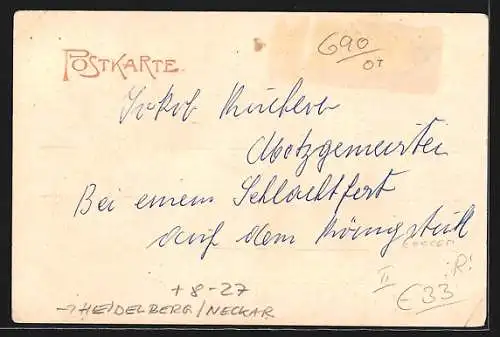 POSTKARTE.
690/07
Jakob
Metzgermeister
Bei einem Schlachtfest
auf dem Königstuhl
R!
II
+ 8-27
€33
→ HEIDELBERG/NECKAR